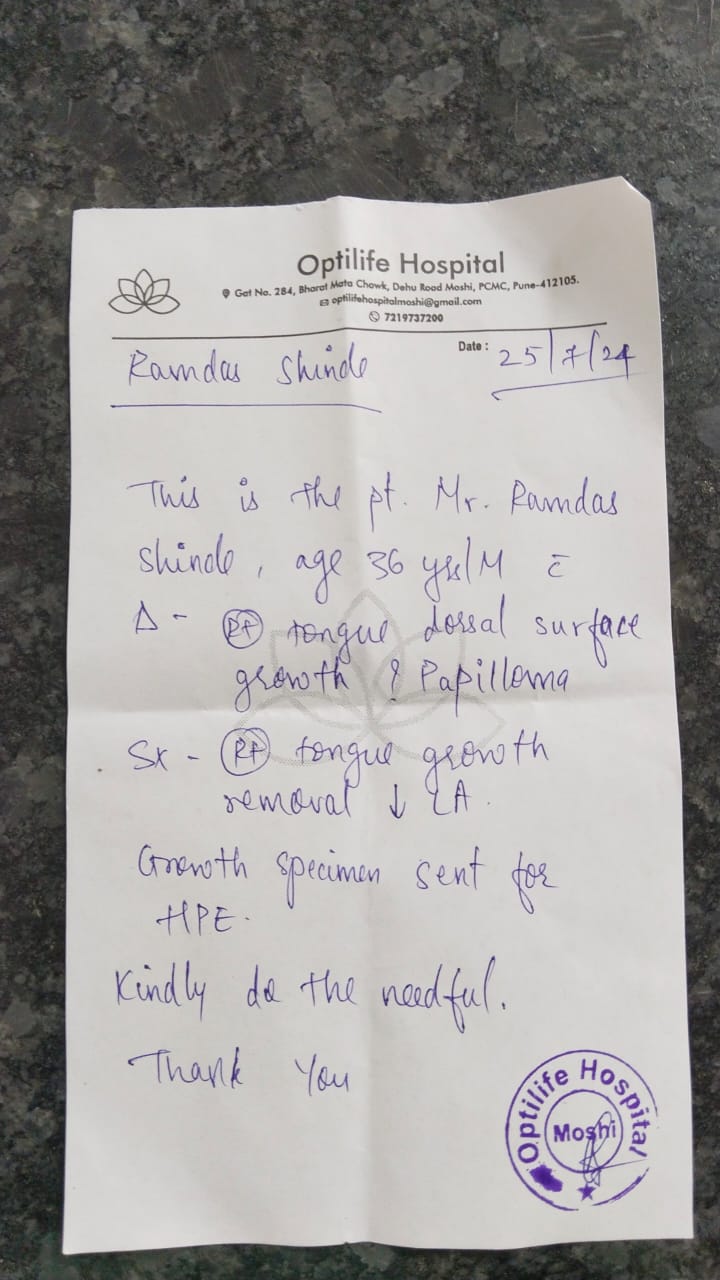 Optilife Hospital
Gat No. 284, Bharat Mata Chowk, Dehu Road Moshi, PCMC, Pune-412105.
optilifehospitalmoshi@gmail.com
7219737200
Ramdas Shinde
Date : 25/7/24
This is the pt. Mr. Ramdas
Shinde, age 36 yrs/M c̄
Δ - Rt tongue dorsal surface
growth ? Papilloma
Sx - Rt tongue growth
removal ↓ LA.
Growth specimen sent for
HPE.
Kindly do the needful.
Thank You
Optilife Hospital
Moshi